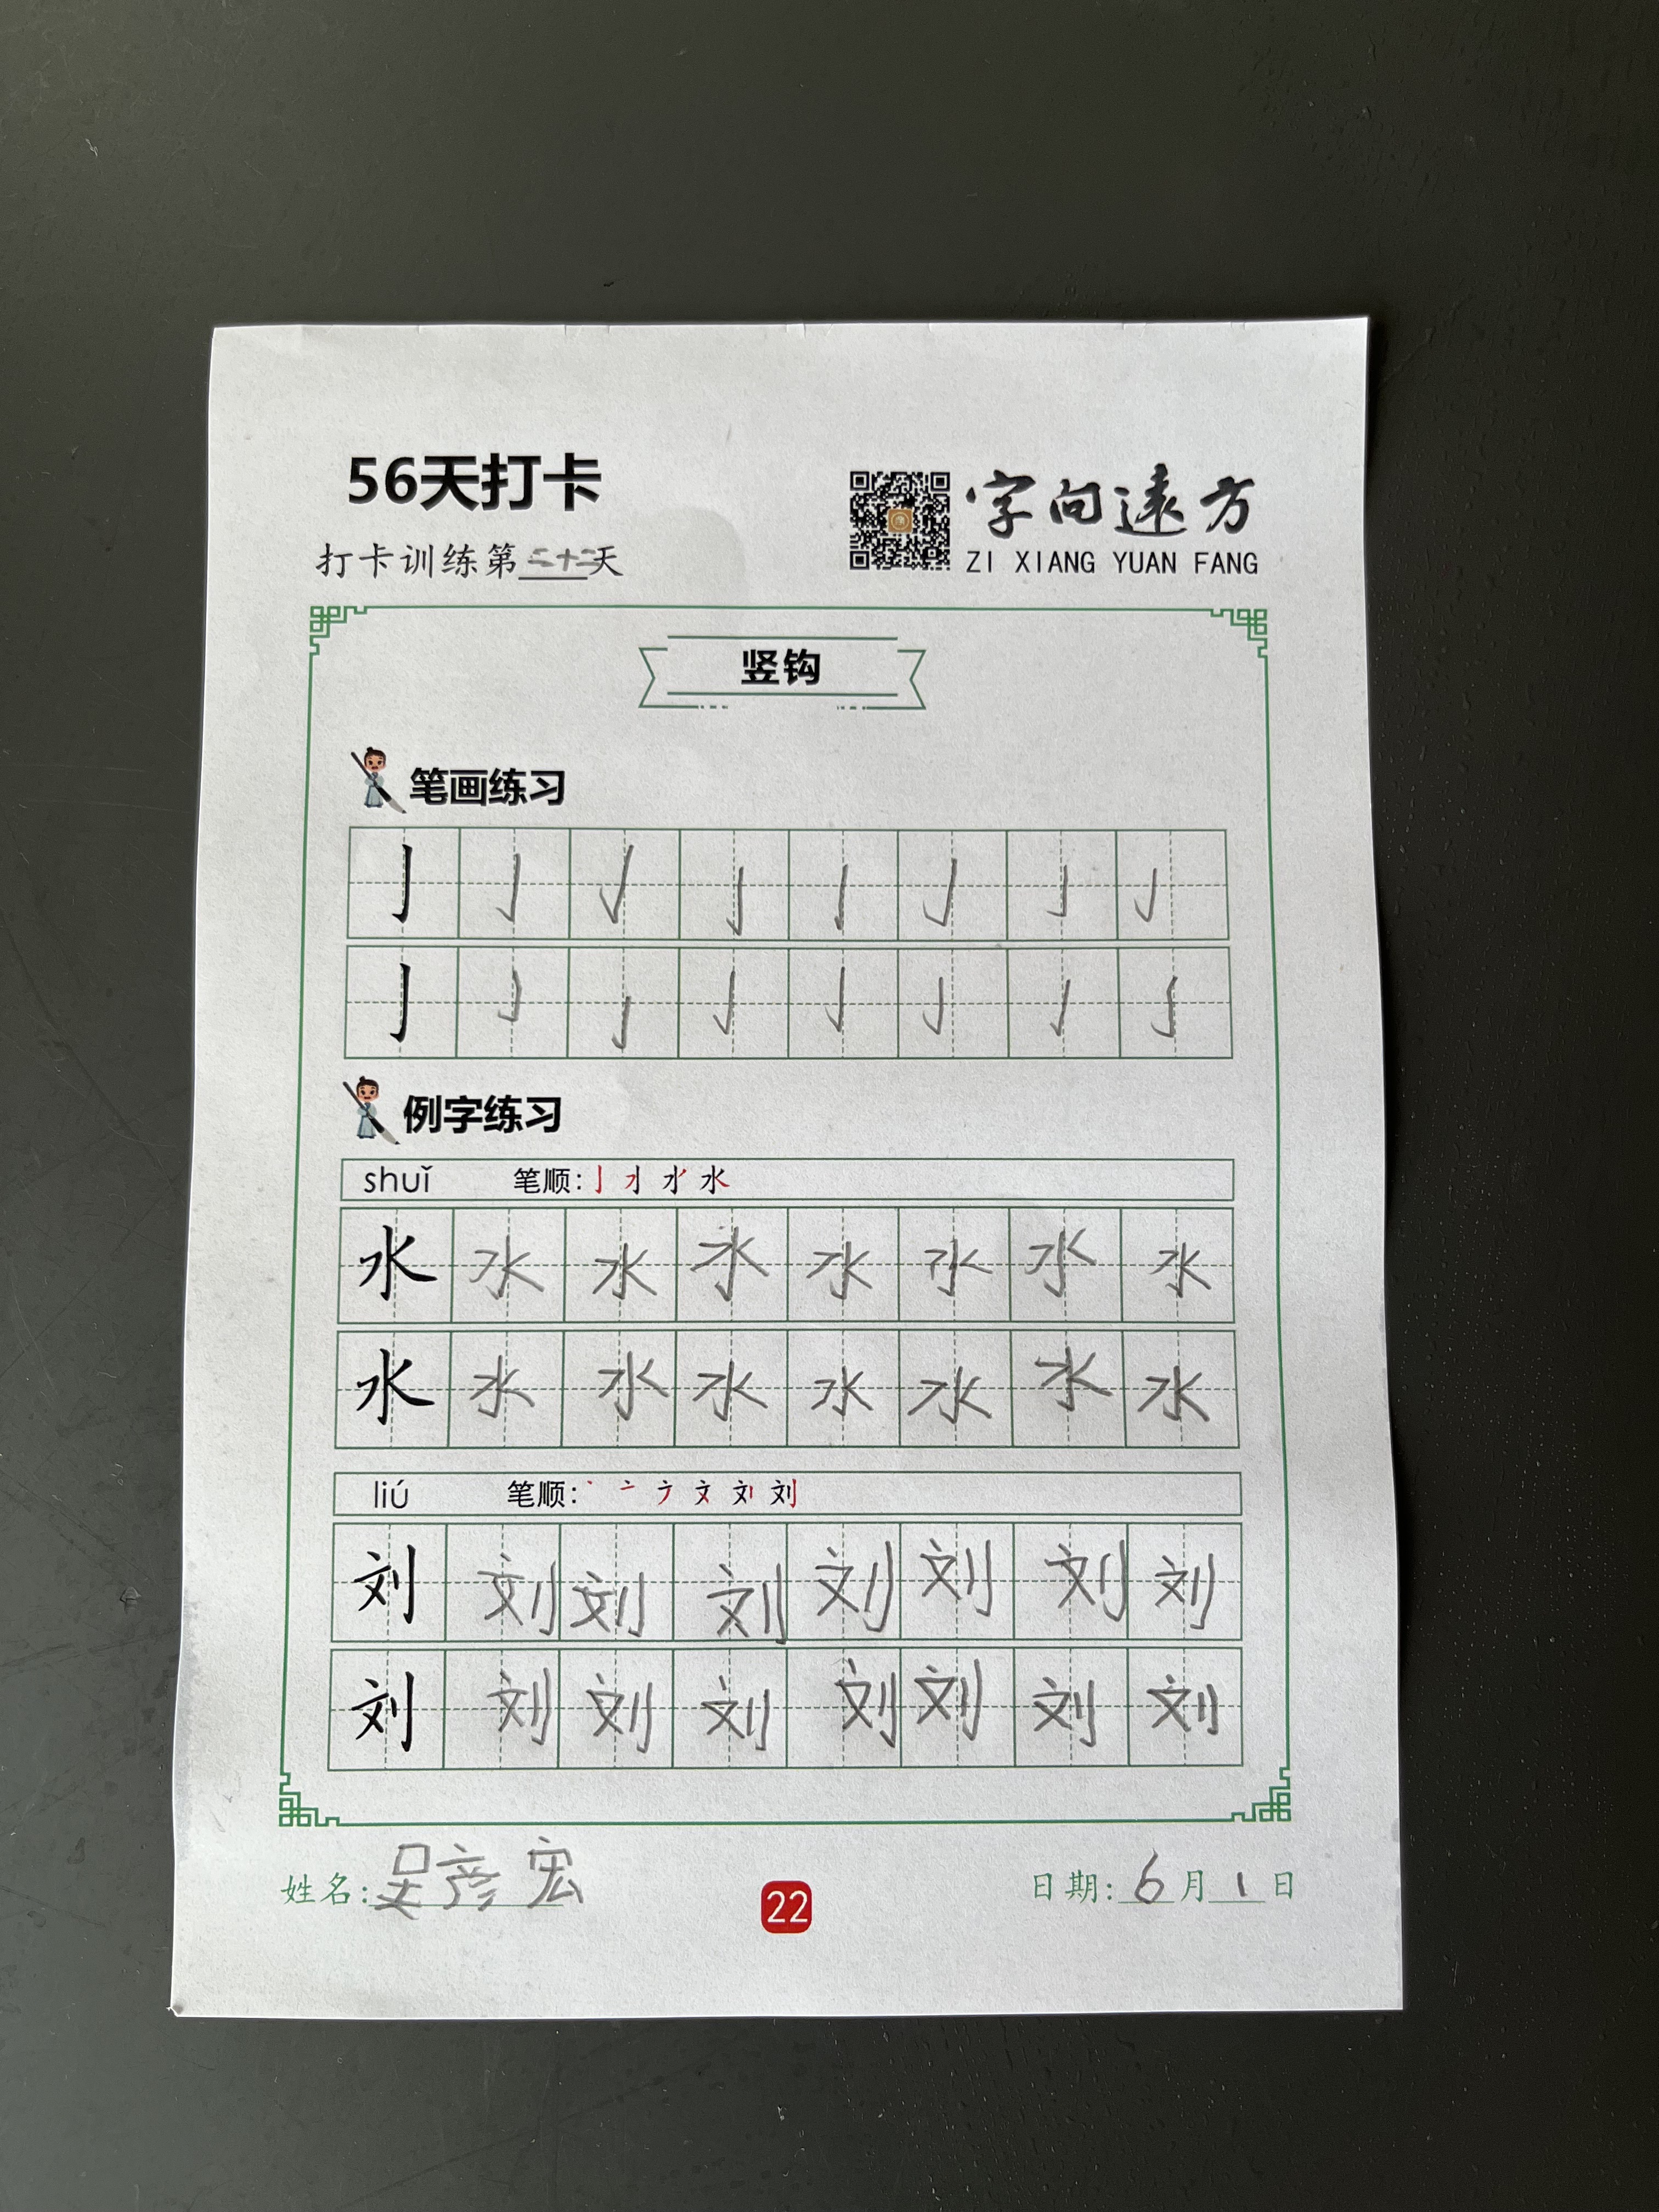 56天打卡
字向遠方
打卡训练第二十二天
ZI XIANG YUAN FANG
竖钩
笔画练习
亅 亅 亅 亅 亅 亅 亅 亅
亅 亅 亅 亅 亅 亅 亅 亅
例字练习
shuǐ 笔顺: 水
水 水 水 水 水 水 水 水
水 水 水 水 水 水 水 水
liú 笔顺: 刘
刘 刘 刘 刘 刘 刘 刘 刘
刘 刘 刘 刘 刘 刘 刘 刘
姓名: 吴彦宏
22
日期: 6月1日